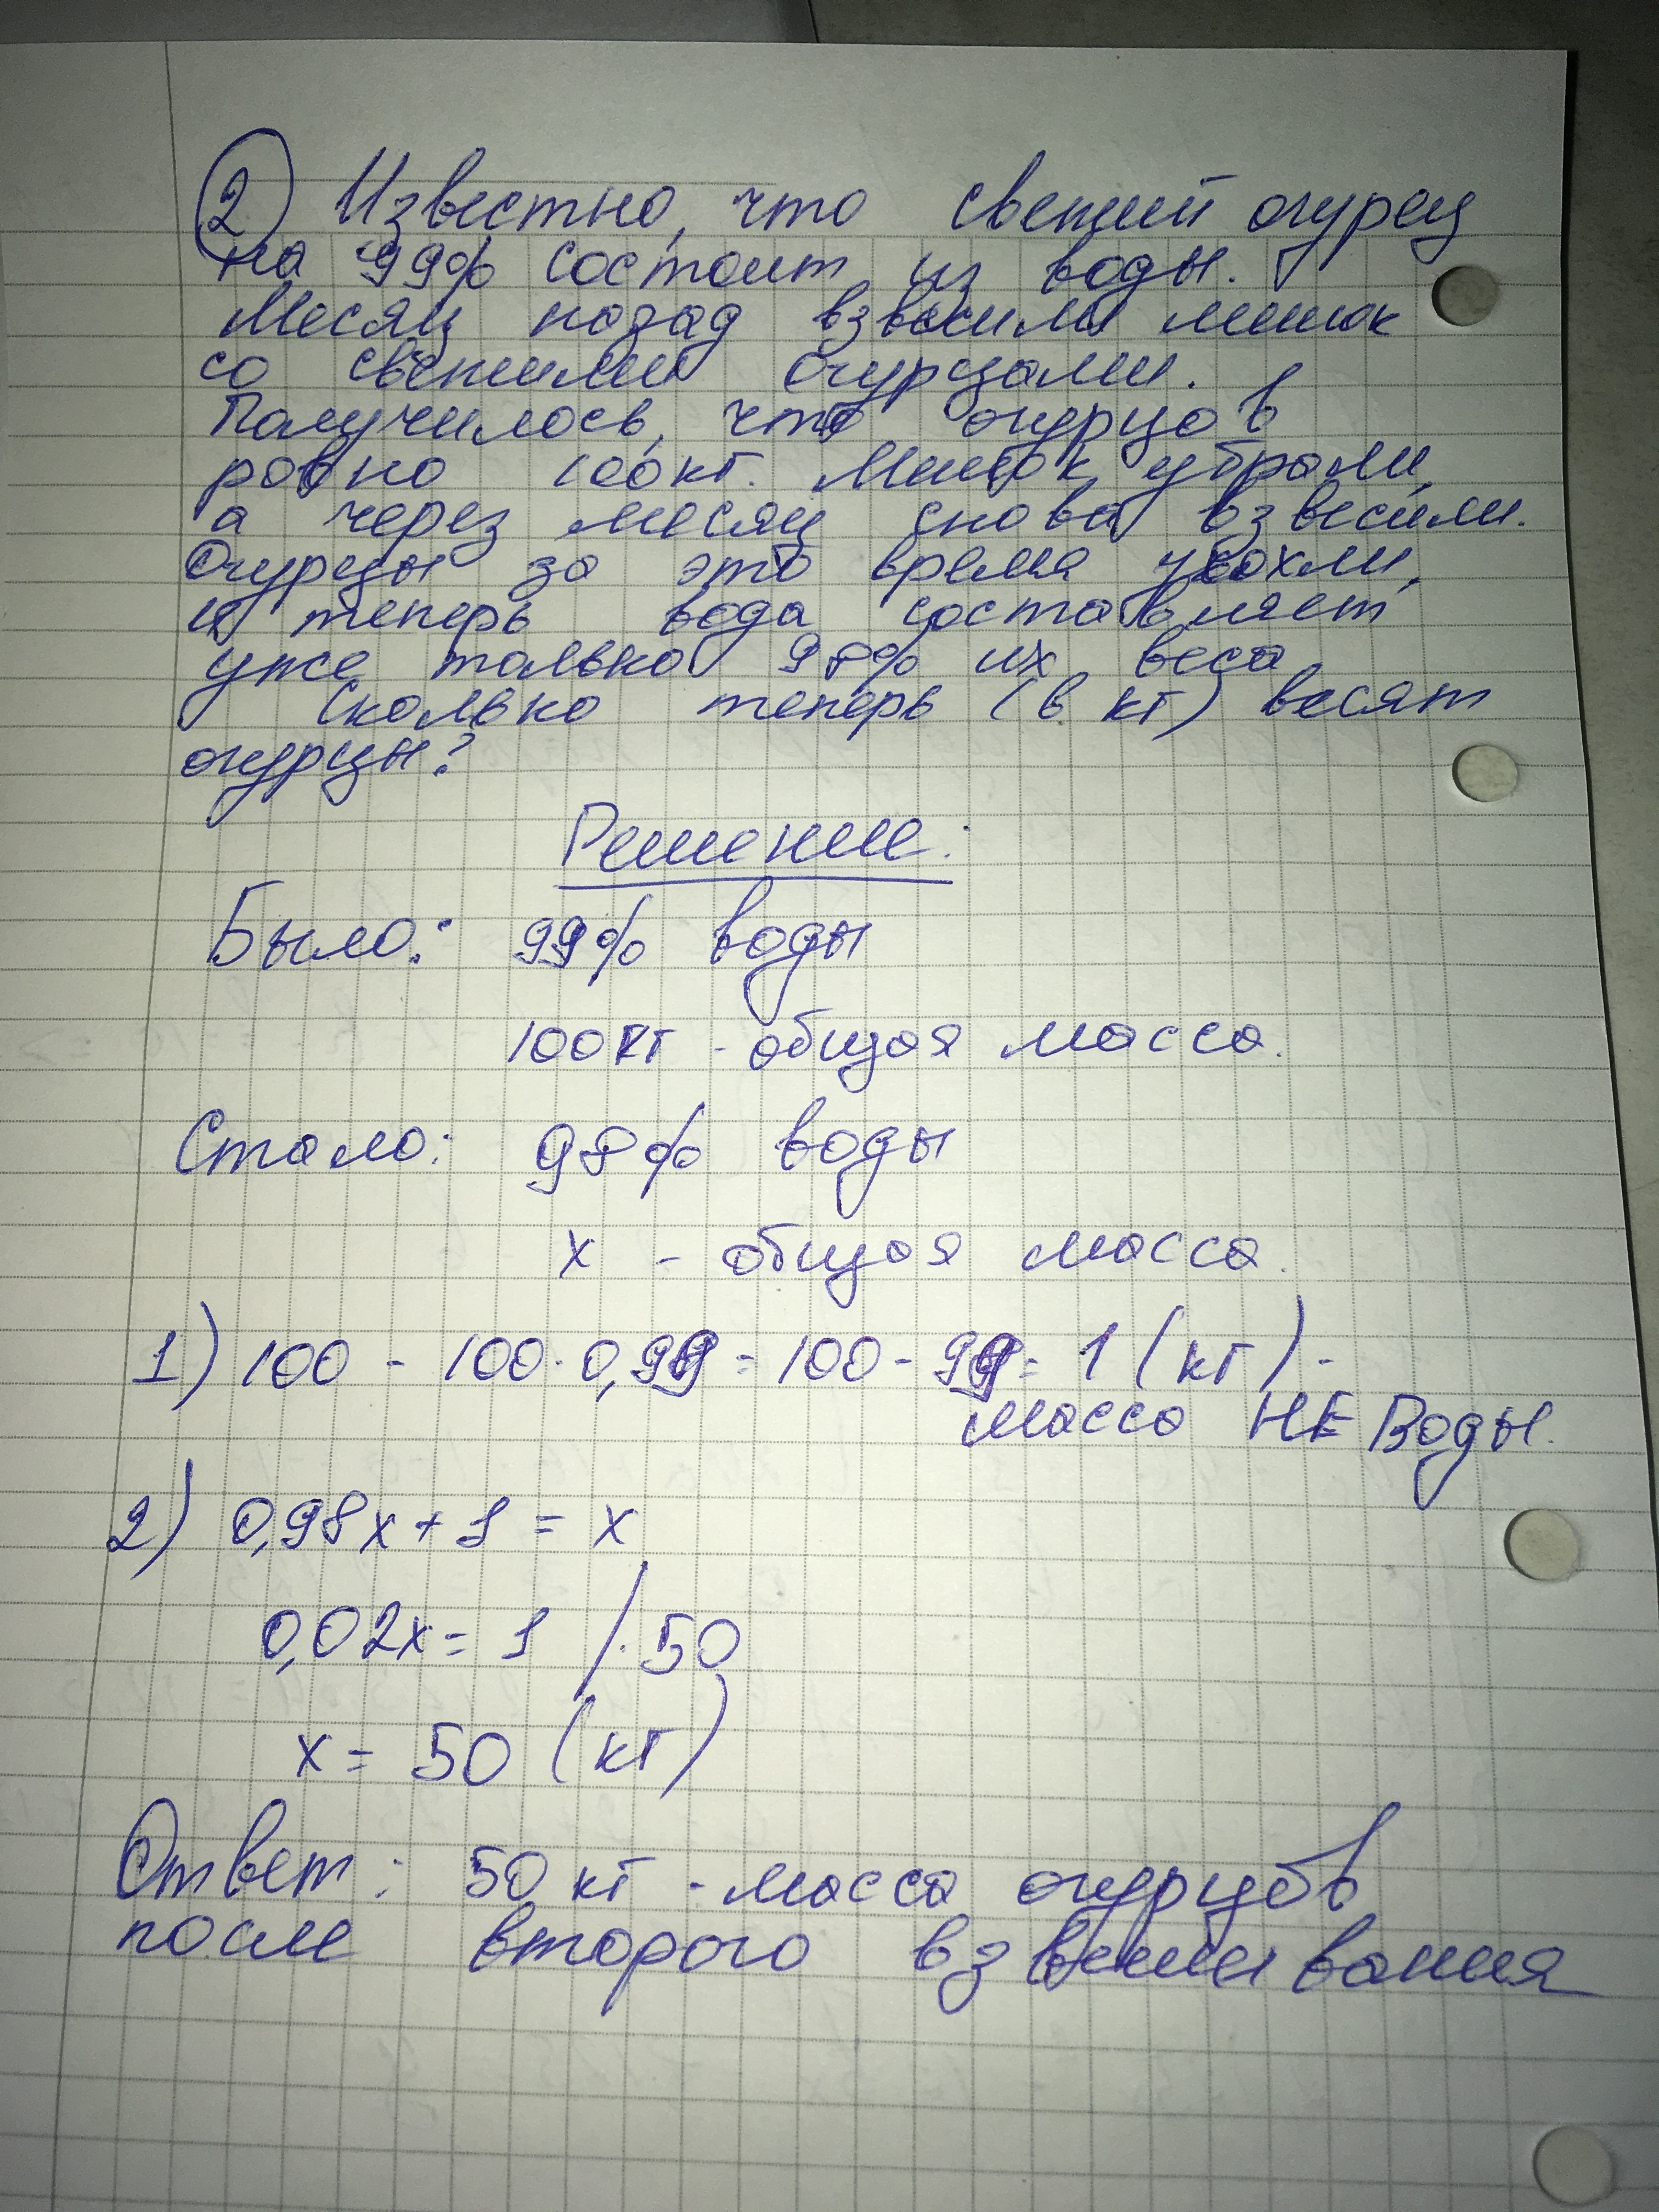 2 Известно, что свежий огурец
на 99% состоит из воды.
Месяц назад взвесили мешок
со свежими огурцами.
Получилось, что огурцов
ровно 100кг. Мешок убрали,
а через месяц снова взвесили.
Огурцы за это время усохли,
и теперь вода составляет
уже только 98% их веса
Сколько теперь (в кг) весят
огурцы?
Решение:
Было: 99% воды
100кг - общая масса.
Стало: 98% воды
x - общая масса.
1) 100 - 100·0,99 = 100 - 99 = 1 (кг) -
масса НЕ Воды.
2) 0,98x + 1 = x
0,02x = 1 /·50
x = 50 (кг)
Ответ: 50 кг - масса огурцов
после второго взвешивания